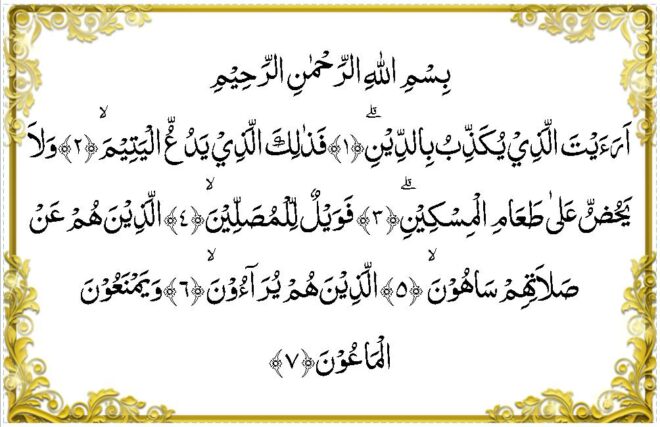 بِسْمِ اللهِ الرَّحْمٰنِ الرَّحِيْمِ
اَرَءَيْتَ الَّذِيْ يُكَذِّبُ بِالدِّيْنِۗ ﴿١﴾ فَذٰلِكَ الَّذِيْ يَدُعُّ الْيَتِيْمَۙ ﴿٢﴾ وَلاَ
يَحُضُّ عَلٰى طَعَامِ الْمِسْكِيْنِۗ ﴿٣﴾ فَوَيْلٌ لِّلْمُصَلِّيْنَۙ ﴿٤﴾ الَّذِيْنَ هُمْ عَنْ
صَلاَتِهِمْ سَاهُوْنَۙ ﴿٥﴾ الَّذِيْنَ هُمْ يُرَآءُوْنَۙ ﴿٦﴾ وَيَمْنَعُوْنَ
الْمَاعُوْنَ ﴿٧﴾